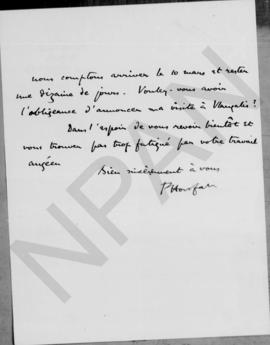 nous comptons arriver le 10 mars et rester
une dizaine de jours. Voulez-vous avoir
l'obligeance d'annoncer ma visite à ?
Dans l'espoir de vous revoir bientôt et
vous trouver pas trop fatigué par votre travail
Bien sincèrement à vous
NPAN